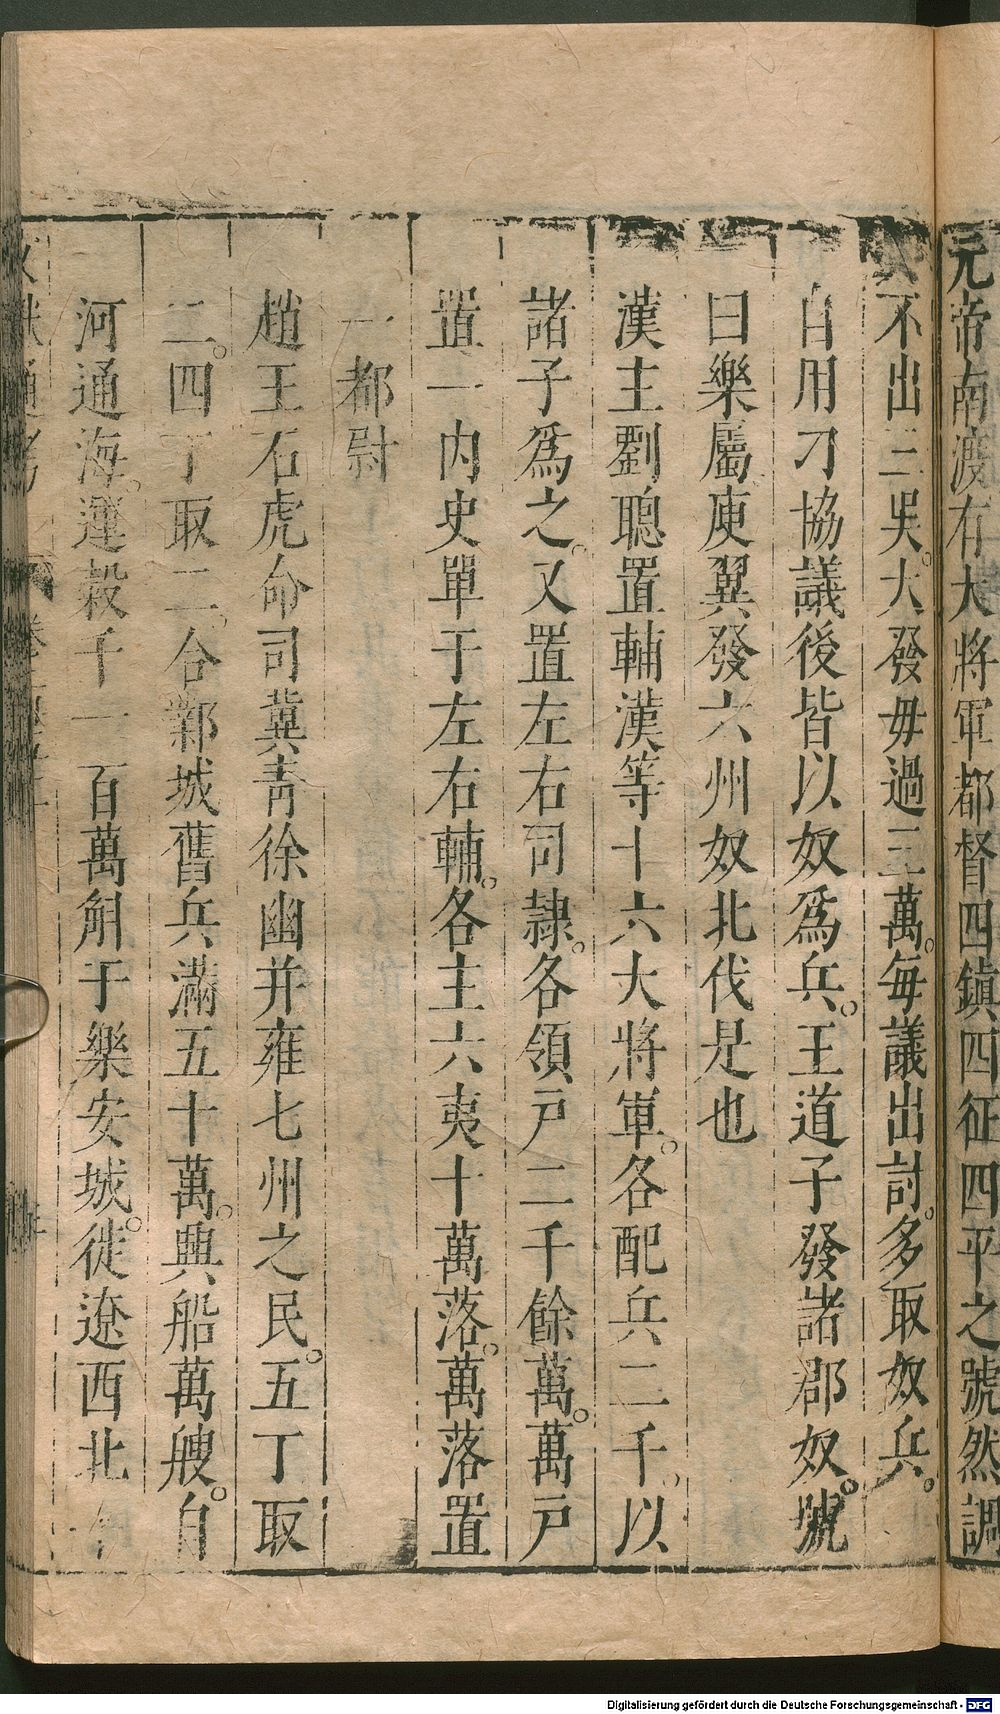 元帝南渡有大將軍都督四鎮四征四平之號然調
兵不出三吳大發毋過三萬每議出討多取奴兵
自用刁協議後皆以奴爲兵王道子發諸郡奴號
曰樂屬庾翼發六州奴北伐是也
漢主劉聰置輔漢等十六大將軍各配兵二千以
諸子爲之又置左右司隷各領戸二千餘萬萬戸
置一内史單于左右輔各主六夷十萬落萬落置
一都尉
趙王石虎命司冀靑徐幽并雍七州之民五丁取
三四丁取二合鄴城舊兵滿五十萬興船萬艘自
河通海運穀千一百萬斛于樂安城徙遼西北
文獻通考
Digitalisierung gefördert durch die Deutsche Forschungsgemeinschaft - DFG